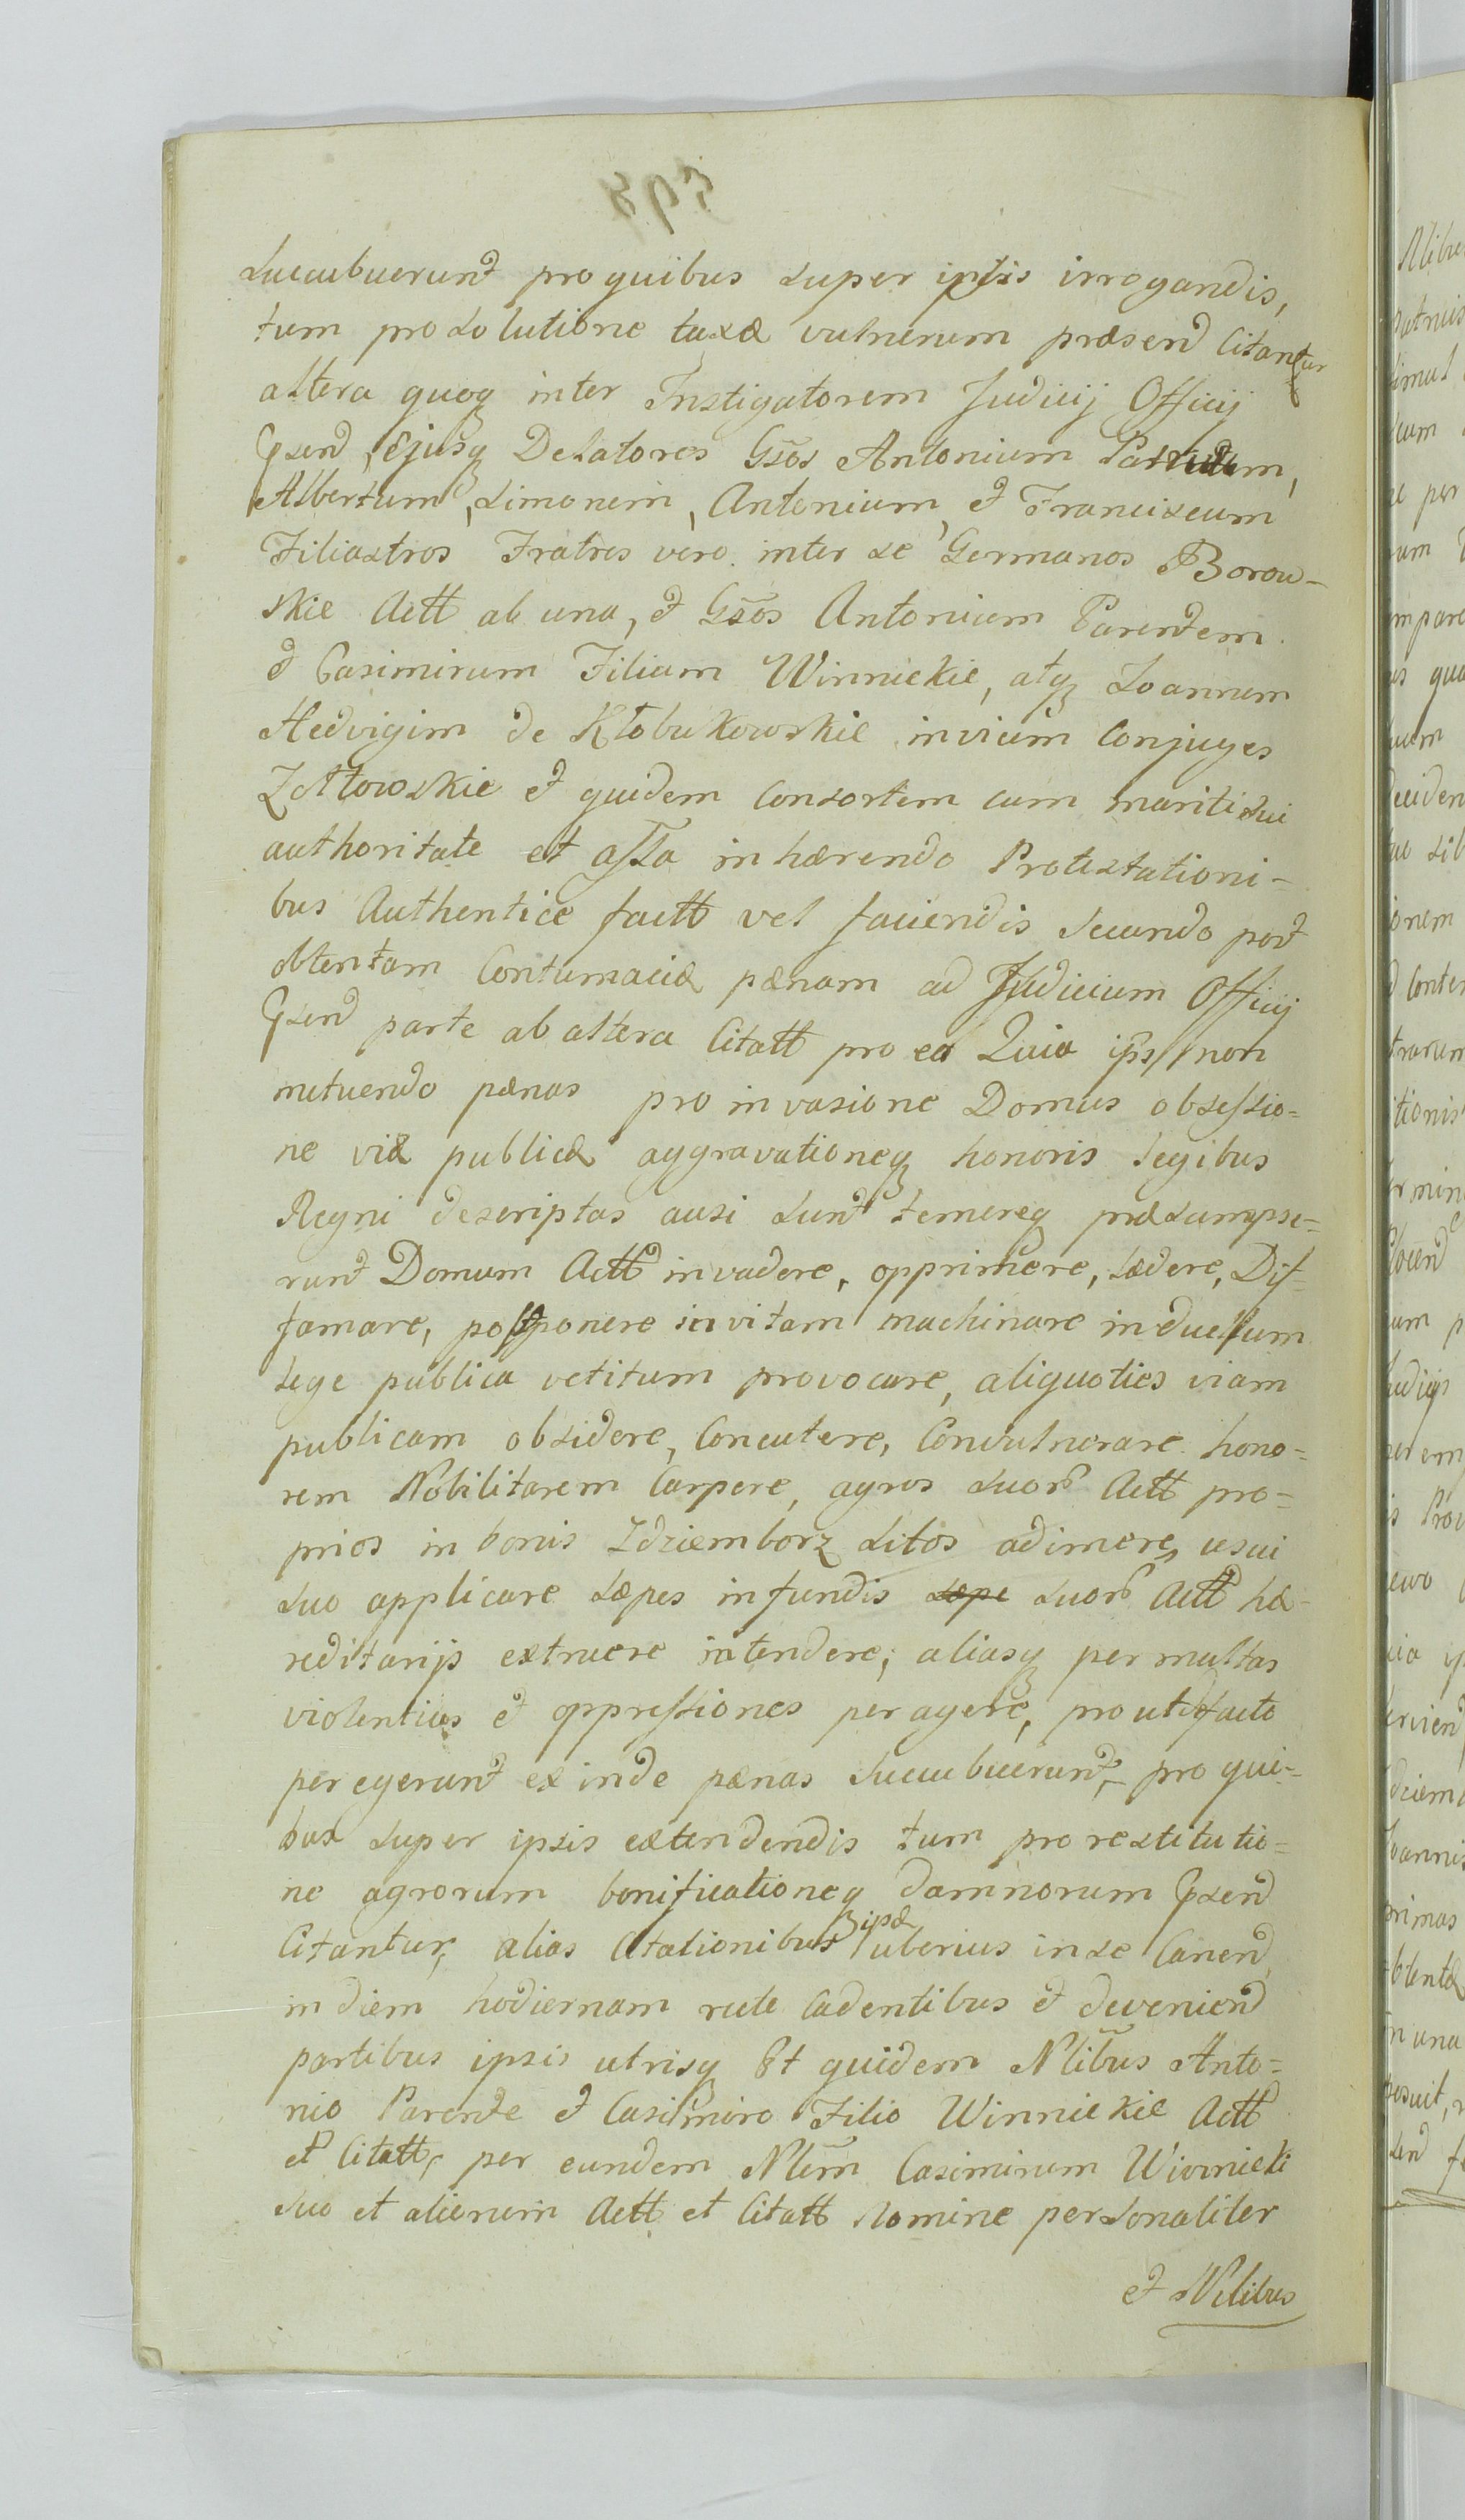 succubuerunt pro quibus super ipsis irrogandis,
tum pro solutione taxæ vulnerum præsend Citantur
altera quoq inter Instigatorem Judicij Officij
Psend, Ejusq Delatores Gsos Antonium Patruum,
Albertum, Simonem, Antonium, et Franciscum
Filiastros Fratres vero inter se Germanos Borow-
skie Actt ab una, et Gsos Antonium Parentem
et Casimirum Filium Winnickie, atq Joannem
Hedvigim de Kłobukowskie invicem Conjuges
Żółtowskie et quidem Consortem cum mariti sui
authoritate et assa inhærendo Protestationi-
bus Authentice factt vel faciendis Secundo post
obtentam Contumaciæ pænam ad Judicium Officij
Psend parte ab altera Citatt pro eo Quia ipsi non
metuendo pænas pro invasione Domus obsessio=
ne viæ publicæ aggravationeq honoris Legibus
Regni descriptas ausi sunt temereq præsumpse=
runt Domum Actt invadere, opprimere, lædere, Dif-
famare, postponere in vitam machinare in duellum
lege publica vetitum provocare, aliquoties viam
publicam obsidere, Concutere, Convulnerare hono=
rem Nobilitarem Carpere, agros suor Actt pro=
prios in bonis Zdziemborz sitos adimere, usui
suo applicare sæpes in fundis sæpe suor Actt hæ-
reditarijs extruere intendere, aliasq per multas
violentias et oppressiones peragere, prout de facto
peregerunt exinde pænas succubuerunt, pro qui-
bus super ipsis extendendis tum pro restitutio=
ne agrorum bonificationeq damnorum Psend
Citantur, alias Citationibus ipsæ uberius in se Canend
in diem hodiernam recte Cadentibus et deveniend
partibus ipsis utrisq Et quidem Nlibus Anto=
nio Parente et Casimiro Filio Winnickie Actt
et Citatt, per eundem Nlem Casimirum Winnicki
suo et alienum Actt et Citatt Nomine personaliter
et Nlibus